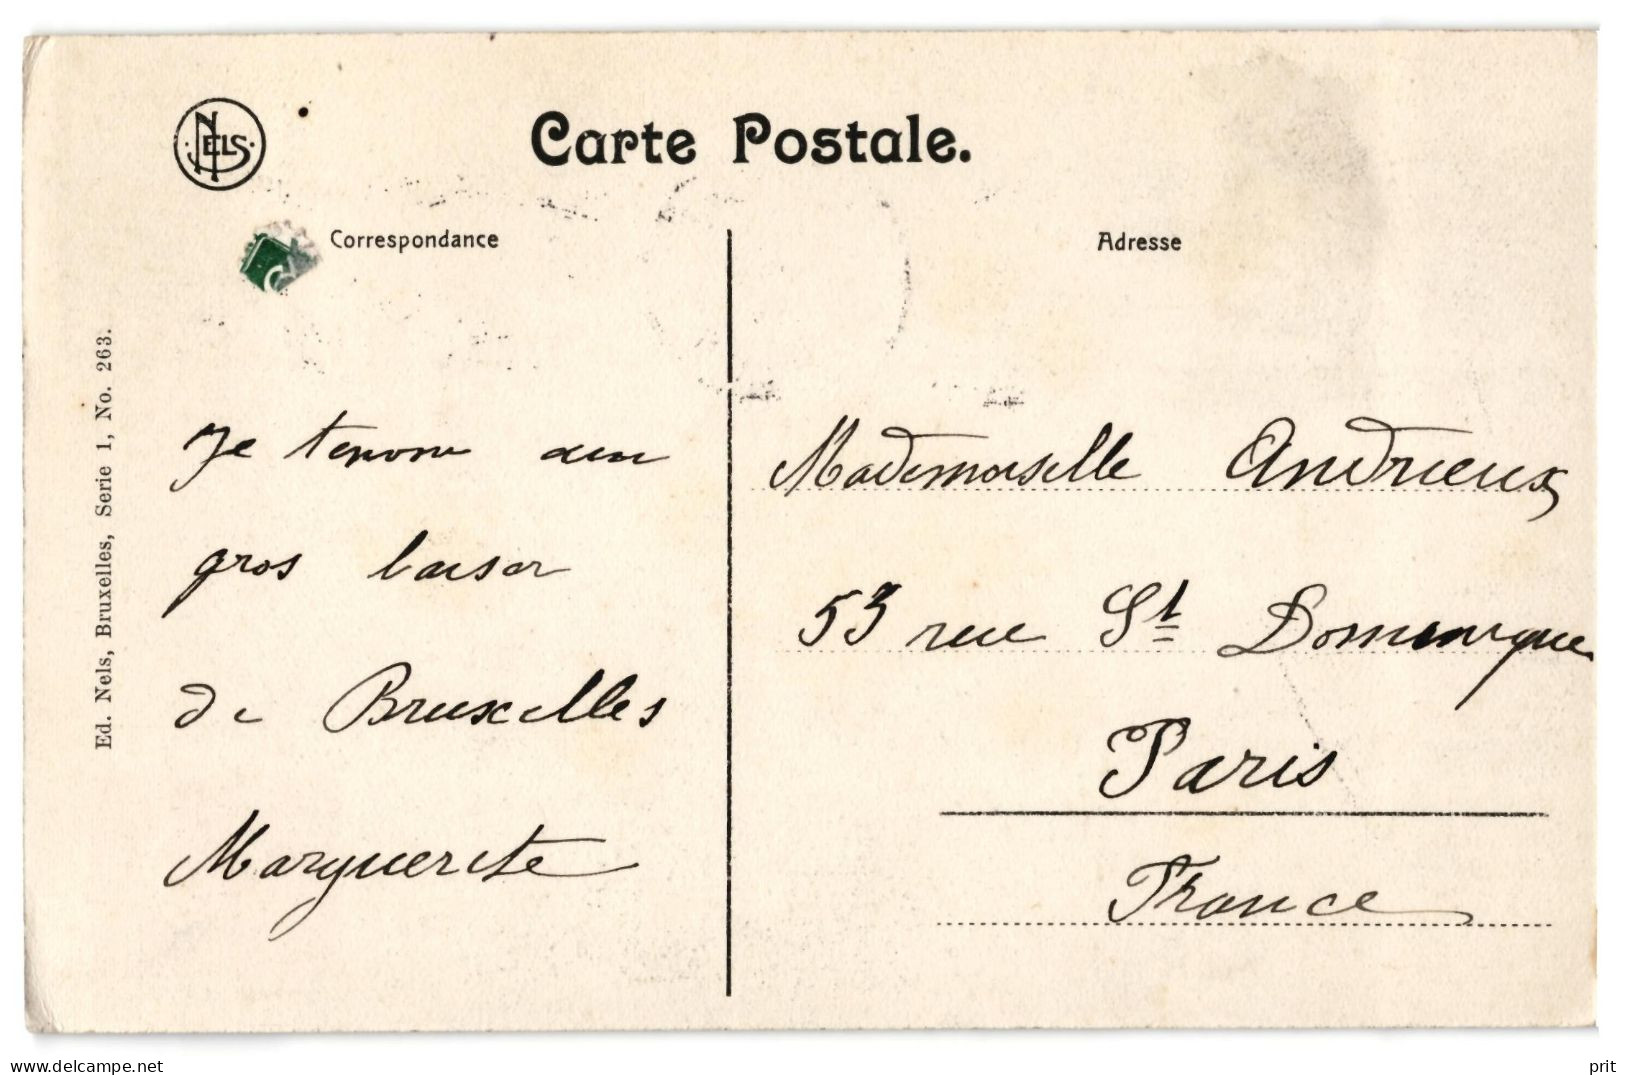 NELS
Carte Postale.
Correspondance
Adresse
Ed. Nels, Bruxelles, Serie 1, No. 263.
Je
gros baiser
de Bruxelles
Marguerite
Mademoiselle Andrieux
53 rue St Dominique
Paris
France
prit
www.delcampe.net